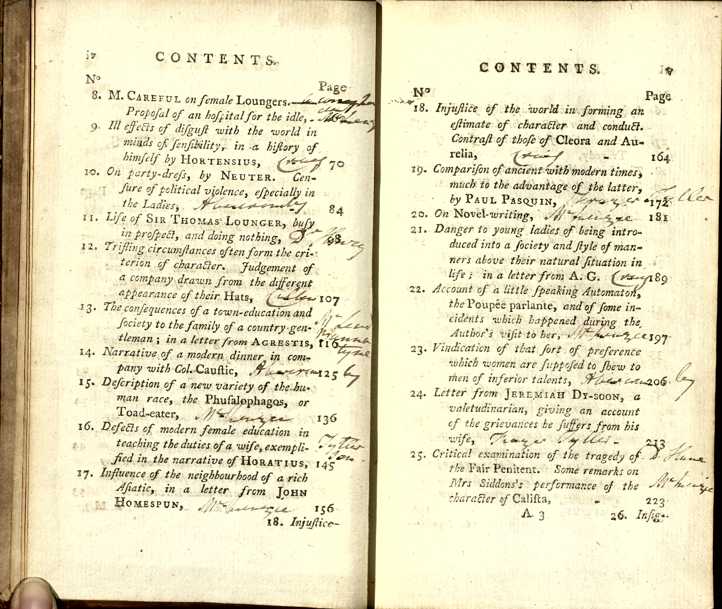 iv CONTENTS.
No Page
8. M. CAREFUL on female Loungers.
Propoſal of an hoſpital for the idle,
9. Ill effects of diſguſt with the world in
minds of ſenſibility, in a hiſtory of
himſelf by HORTENSIUS, Craig 70
10. On party-dreſs, by NEUTER. Cen-
ſure of political violence, eſpecially in
the Ladies, Abercromby 84
11. Life of SIR THOMAS LOUNGER, buſy
in proſpect, and doing nothing, Dr Henry 98
12. Trifling circumſtances often form the cri-
terion of character. Judgement of
a company drawn from the different
appearance of their Hats, 107
13. The conſequences of a town-education and
ſociety to the family of a country gen-
tleman; in a letter from AGRESTIS, 116
14. Narrative of a modern dinner in com-
pany with Col. Cauſtic, Abercromby 125
15. Deſcription of a new variety of the hu-
man race, the Phuſalophagos, or
Toad-eater, McKenzie 136
16. Defects of modern female education in
teaching the duties of a wife, exempli-
fied in the narrative of HORATIUS, 145
17. Influence of the neighbourhood of a rich
Aſiatic, in a letter from JOHN
HOMESPUN, McKenzie 156
18. Injuſtice
CONTENTS. iv
No Page
18. Injuſtice of the world in forming an
eſtimate of character and conduct.
Contraſt of thoſe of Cleora and Au-
relia, Craig 164
19. Compariſon of ancient with modern times,
much to the advantage of the latter,
by PAUL PASQUIN, Frazer Tytler 172
20. On Novel-writing, McKenzie 181
21. Danger to young ladies of being intro-
duced into a ſociety and ſtyle of man-
ners above their natural ſituation in
life; in a letter from A. G. Craig 189
22. Account of a little ſpeaking Automaton,
the Poupée parlante, and of ſome in-
cidents which happened during the
Author's viſit to her, McKenzie 197
23. Vindication of that ſort of preference
which women are ſuppoſed to ſhew to
men of inferior talents, Abercromby 206
24. Letter from JEREMIAH DY-SOON, a
valetudinarian, giving an account
of the grievances he ſuffers from his
wife, Frazer Tytler 213
25. Critical examination of the tragedy of
the Fair Penitent. Some remarks on
Mrs Siddons's performance of the McKenzie
character of Caliſta, 223
A 3 26. Inſig-